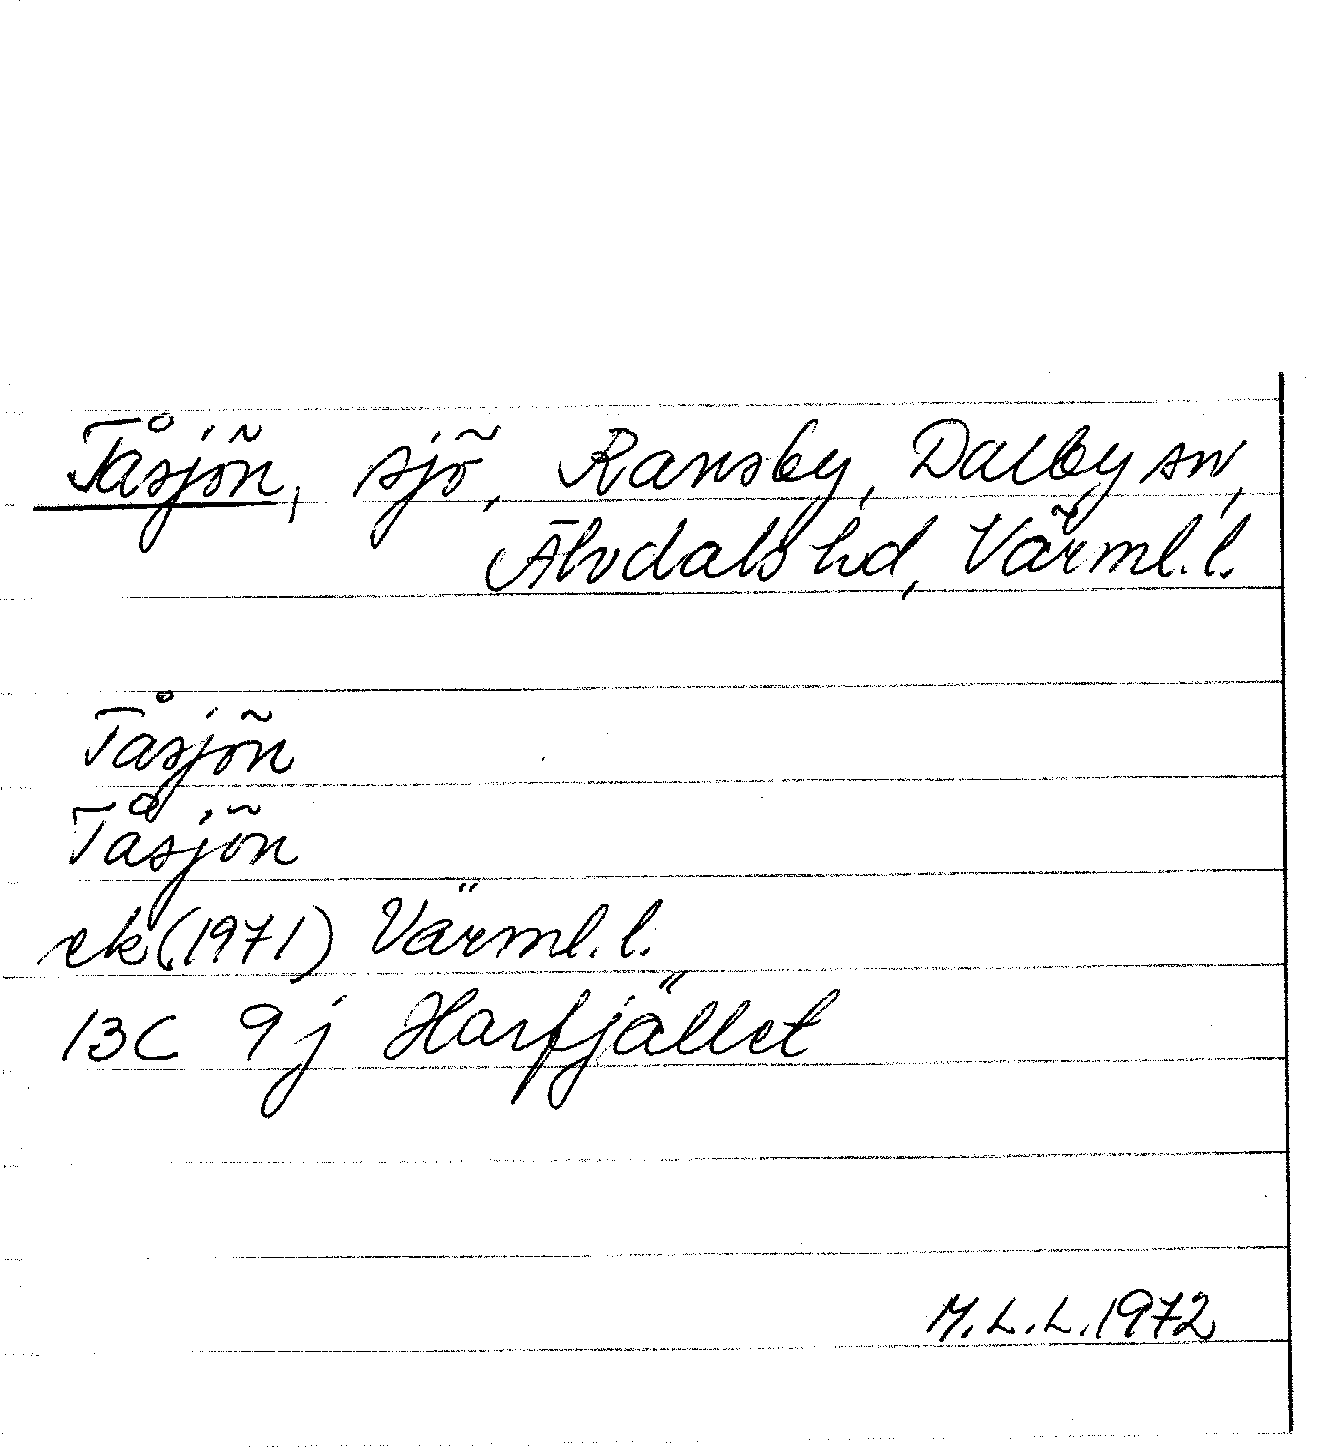 Tåsjön, sjö, Ransby, Dalby sn,
Älvdals hd, Värml. l.
Tåsjön
Tåsjön
ek (1971) Värml. l.
13C 9j Harfjället
M. L. L. 1972